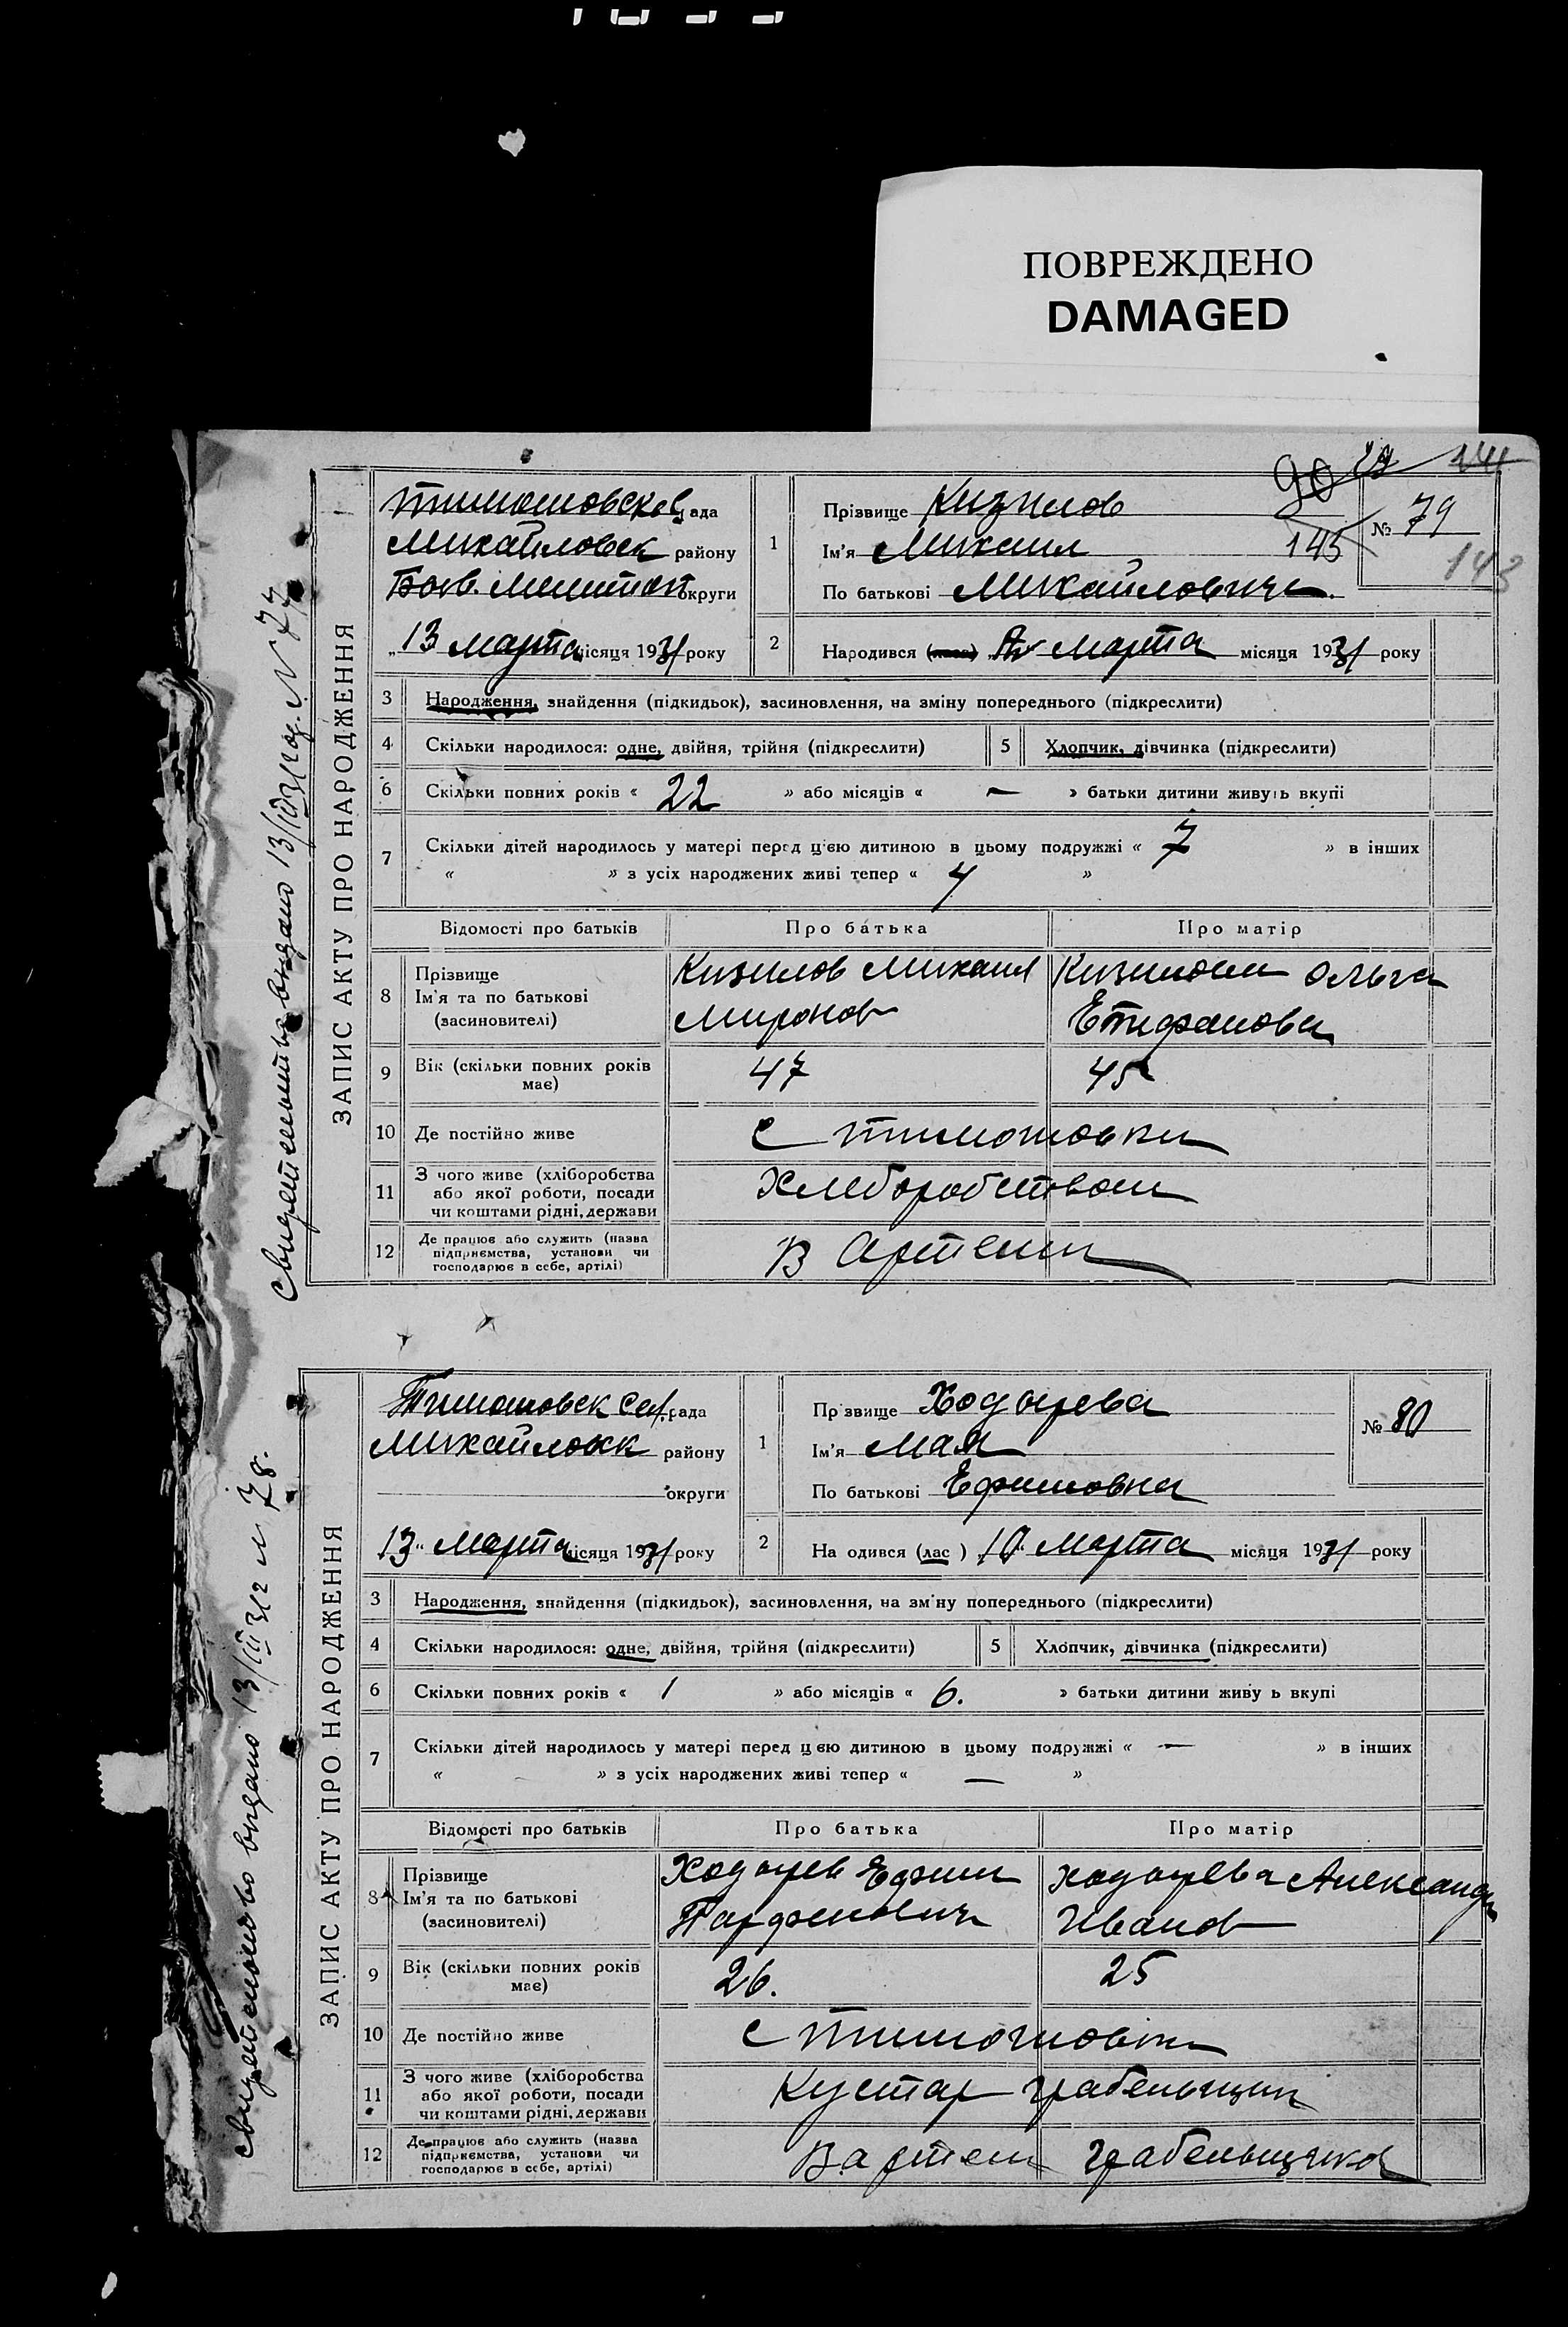 ПОВРЕЖДЕНО
DAMAGED
ЗАПИС АКТУ ПРО НАРОДЖЕННЯ
Тимошовск С рада
Михайловск району
округи
„13 марта місяця 1931 року
1
Прізвище Кизилов
Ім'я Михаил
По батькові Михайлович
90
145
№ 79
143
2
Народився марта місяця 1931 року
3 Народження, знайдення (підкидьок), засиновлення, на зміну попереднього (підкреслити)
4 Скільки народилося: одне, двійня, трійня (підкреслити) 5 Хлопчик, дівчинка (підкреслити)
6 Скільки повних років « 22 » або місяців « — » батьки дитини живуть вкупі
7 Скільки дітей народилось у матері перед цією дитиною в цьому подружжі « 7 » в інших
« » з усіх народжених живі тепер « 4 »
Відомості про батьків Про батька Про матір
8 Прізвище Ім'я та по батькові (засиновителі)
Кизилов Михаил
Миронов
Ольга
Епифанова
9 Вік (скільки повних років має) 47 45
10 Де постійно живе с Тимошовки
11 З чого живе (хліборобства або якої роботи, посади чи коштами рідні, держави Хлеборобством
12 Де працює або служить (назва підприємства, установи чи господарює в себе, артілі) В Артели
Свидетельство выдано 13/III 31 год. N 77
ЗАПИС АКТУ ПРО НАРОДЖЕННЯ
Тимошовск сел. рада
Михайловск району
округи
13" марта місяця 1931 року
1
Прзвище Ходырева
Ім'я Мая
По батькові Ефимовна
№ 80
2
На одився (лас ) 10 марта місяця 1931 року
3 Народження, знайдення (підкидьок), засиновлення, на зм'ну попереднього (підкреслити)
4 Скільки народилося: одне, двійня, трійня (підкреслити) 5 Хлопчик, дівчинка (підкреслити)
6 Скільки повних років « 1 » або місяців « 6. » батьки дитини живу ь вкупі
7 Скільки дітей народилось у матері перед цією дитиною в цьому подружжі « — » в інших
« » з усіх народжених живі тепер « — »
Відомості про батьків Про батька Про матір
8 Прізвище Ім'я та по батькові (засиновителі)
Ходырев Ефим
Парфенович
Ходырева Александ
Иванов
9 Вік (скільки повних років має) 26. 25
10 Де постійно живе с Тимошовки
11 З чого живе (хліборобства або якої роботи, посади чи коштами рідні, держави Кустар грабельщик
12 Де працює або служить (назва підприємства, установи чи господарює в себе, артілі) В артели грабельщиков
Свидетельство выдано 13/III 31 г N 78.